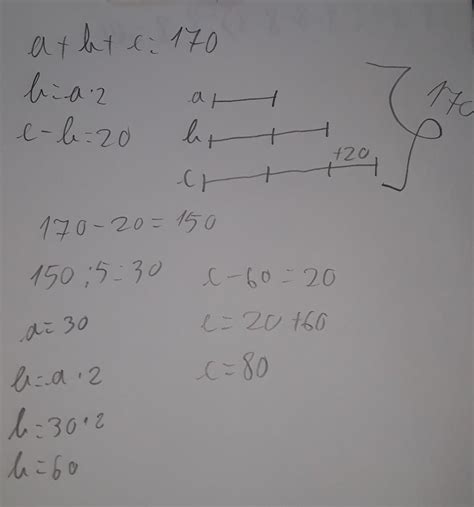 a + b + c = 170
b = a · 2
c - b = 20
a
b
c
+20
170
170 - 20 = 150
150 : 5 = 30
a = 30
b = a · 2
b = 30 · 2
b = 60
c - 60 = 20
c = 20 + 60
c = 80